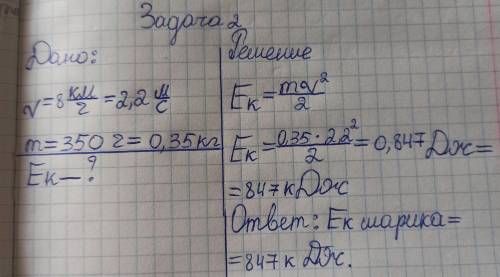 Задача 2
Дано:
v=8 км/г = 2,2 м/с
m=350 г = 0,35 кг
Eк — ?
Решение
Eк = mv²/2
Eк = 0,35 · 2,2²/2 = 0,847 Дж =
= 847 кДж
Ответ: Eк шарика =
= 847 к Дж.